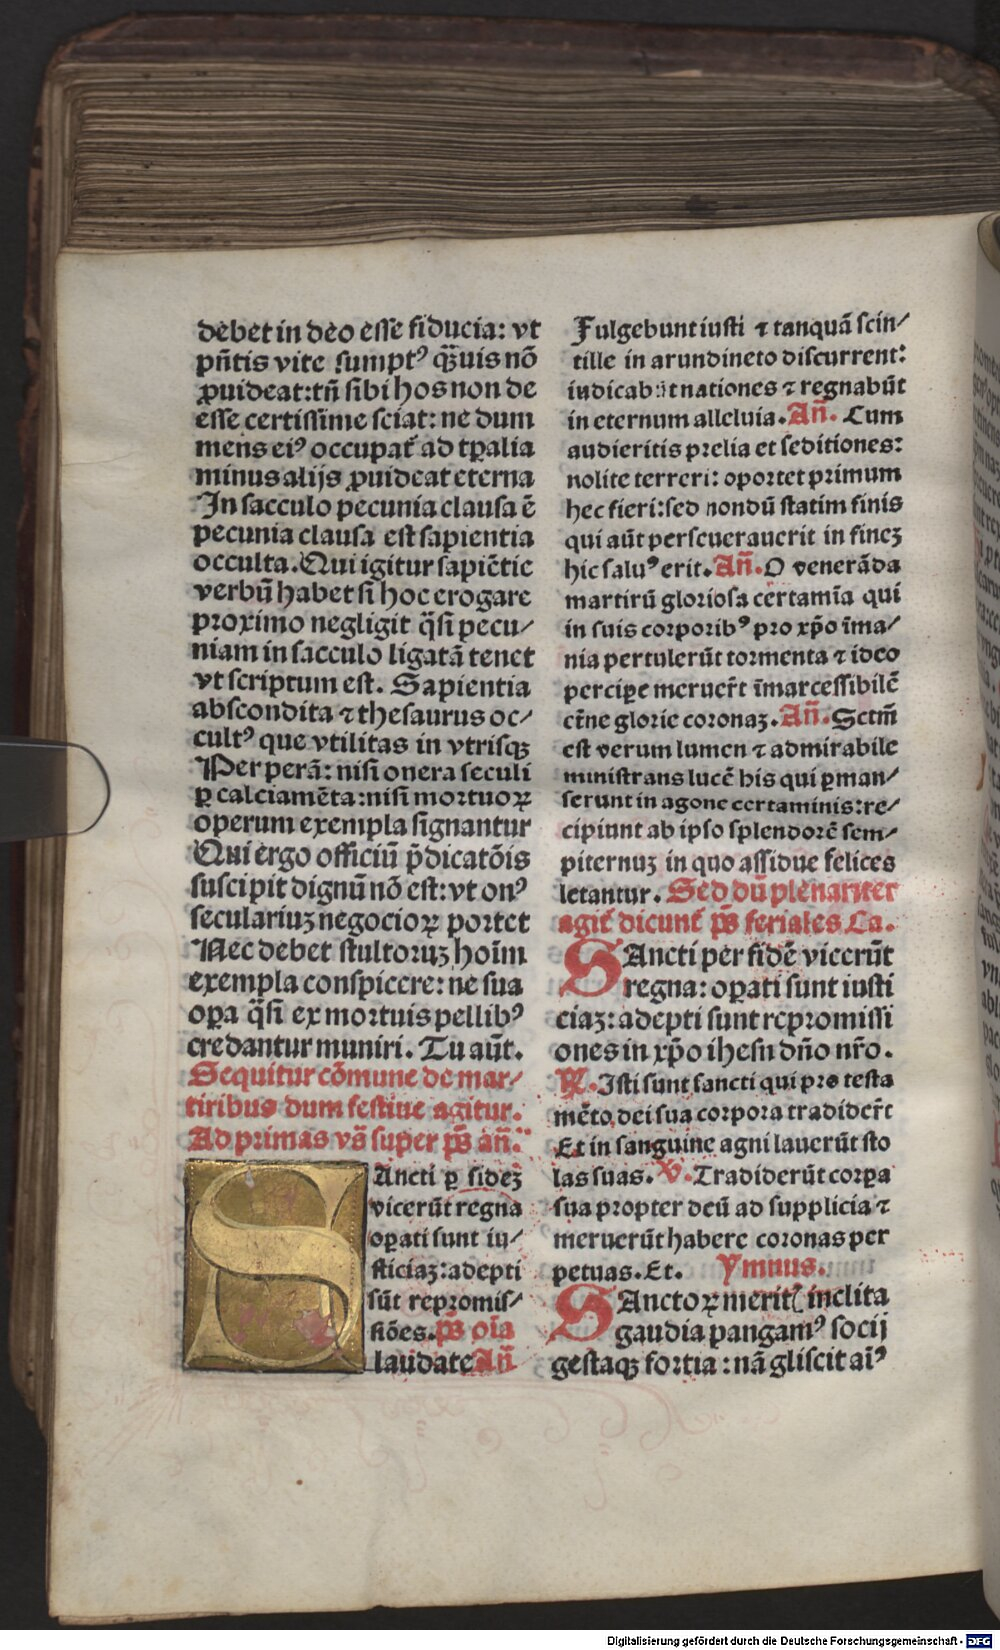 debet in deo esse fiducia: vt
pñtis vite sumptꝰ q̈̄uis nō
ꝓuideat: tñ sibi hos non de
esse certissime sciat: ne dum
mens eiꝰ occupat̄ ad tꝑalia
minus alijs ꝓuideat eterna
In sacculo pecunia clausa ē
pecunia clausa est sapientia
occulta. Qui igitur sapiētie
verbū habet si hoc erogare
proximo negligit q̄si pecu/
niam in sacculo ligatā tenet
vt scriptum est. Sapientia
abscondita ⁊ thesaurus oc/
cultꝰ que vtilitas in vtrisqꝫ
Per perā: nisi onera seculi
ꝑ calciamēta: nisi mortuoꝝ
operum exempla signantur
Qui ergo officiū p̄dicatōis
suscipit dignū nō est: vt onꝰ
seculariuꝫ negocioꝝ portet
Nec debet stultoruꝫ hoīm
exempla conspicere: ne sua
oꝑa q̄si ex mortuis pellibꝰ
credantur muniri. Tu aūt.
Sequitur cōmune de mar/
tiribus dum festiue agitur.
Ad primas vā super pš añ.
SAncti ꝑ fideꝫ
vicerūt regna
oꝑati sunt iu/
sticiaꝫ: adepti
sūt repromis/
siōes. pš oīa
laudate Añ
Fulgebunt iusti ⁊ tanquā scin/
tille in arundineto discurrent:
iudicabūt nationes ⁊ regnabūt
in eternum alleluia. Añ. Cum
audieritis prelia et seditiones:
nolite terreri: oportet primum
hec fieri: sed nondū statim finis
qui aūt perseuerauerit in fineꝫ
hic saluꝰ erit. Añ. O venerāda
martirū gloriosa certamīa qui
in suis corporibꝰ pro xp̄o īma/
nia pertulerūt tormenta ⁊ ideo
percipe meruer̄t īmarcessibilē
et̄ne glorie coronaꝫ. Añ. Sctm̄
est verum lumen ⁊ admirabile
ministrans lucē his qui ꝑman/
serunt in agone certaminis: re/
cipiunt ab ipso splendorē sem/
piternuꝫ in quo assidue felices
letantur. Sed dū plenariter
agit̄ dicunt̄ pš feriales Ca.
SAncti per fidē vicerūt
regna: oꝑati sunt iusti
ciaꝫ: adepti sunt repromissi
ones in xp̄o ihesu dño nr̄o.
℟. Isti sunt sancti qui pro testa
mēto dei sua corpora tradider̄t
Et in sanguine agni lauerūt sto
las suas. ℣. Tradiderūt corꝑa
sua propter deū ad supplicia ⁊
meruerūt habere coronas per
petuas. Et. Ymnus.
SAnctoꝝ meritꝭ inclita
gaudia pangamꝰ socij
gestaqꝫ fortia: nā gliscit aīꝰ
Digitalisierung gefördert durch die Deutsche Forschungsgemeinschaft - DFG